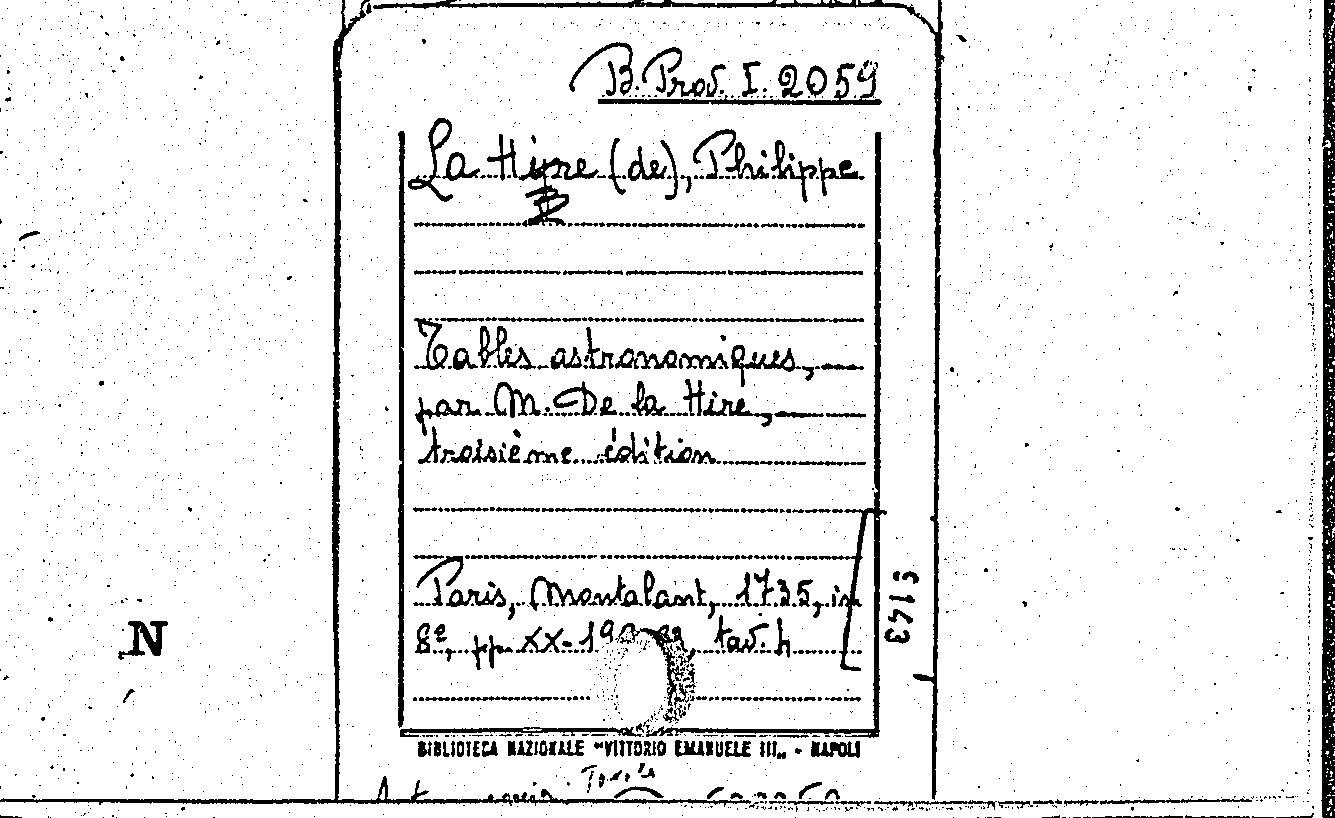 B. Prov. I. 2059
La Hire (de), Philippe
Tables astronomiques,
par M. De la Hire,
troisième édition
Paris, Montalant, 1735, in
8º, pp. XX- tav. 4
5143
N
BIBLIOTECA NAZIONALE "VITTORIO EMANUELE III„ - NAPOLI